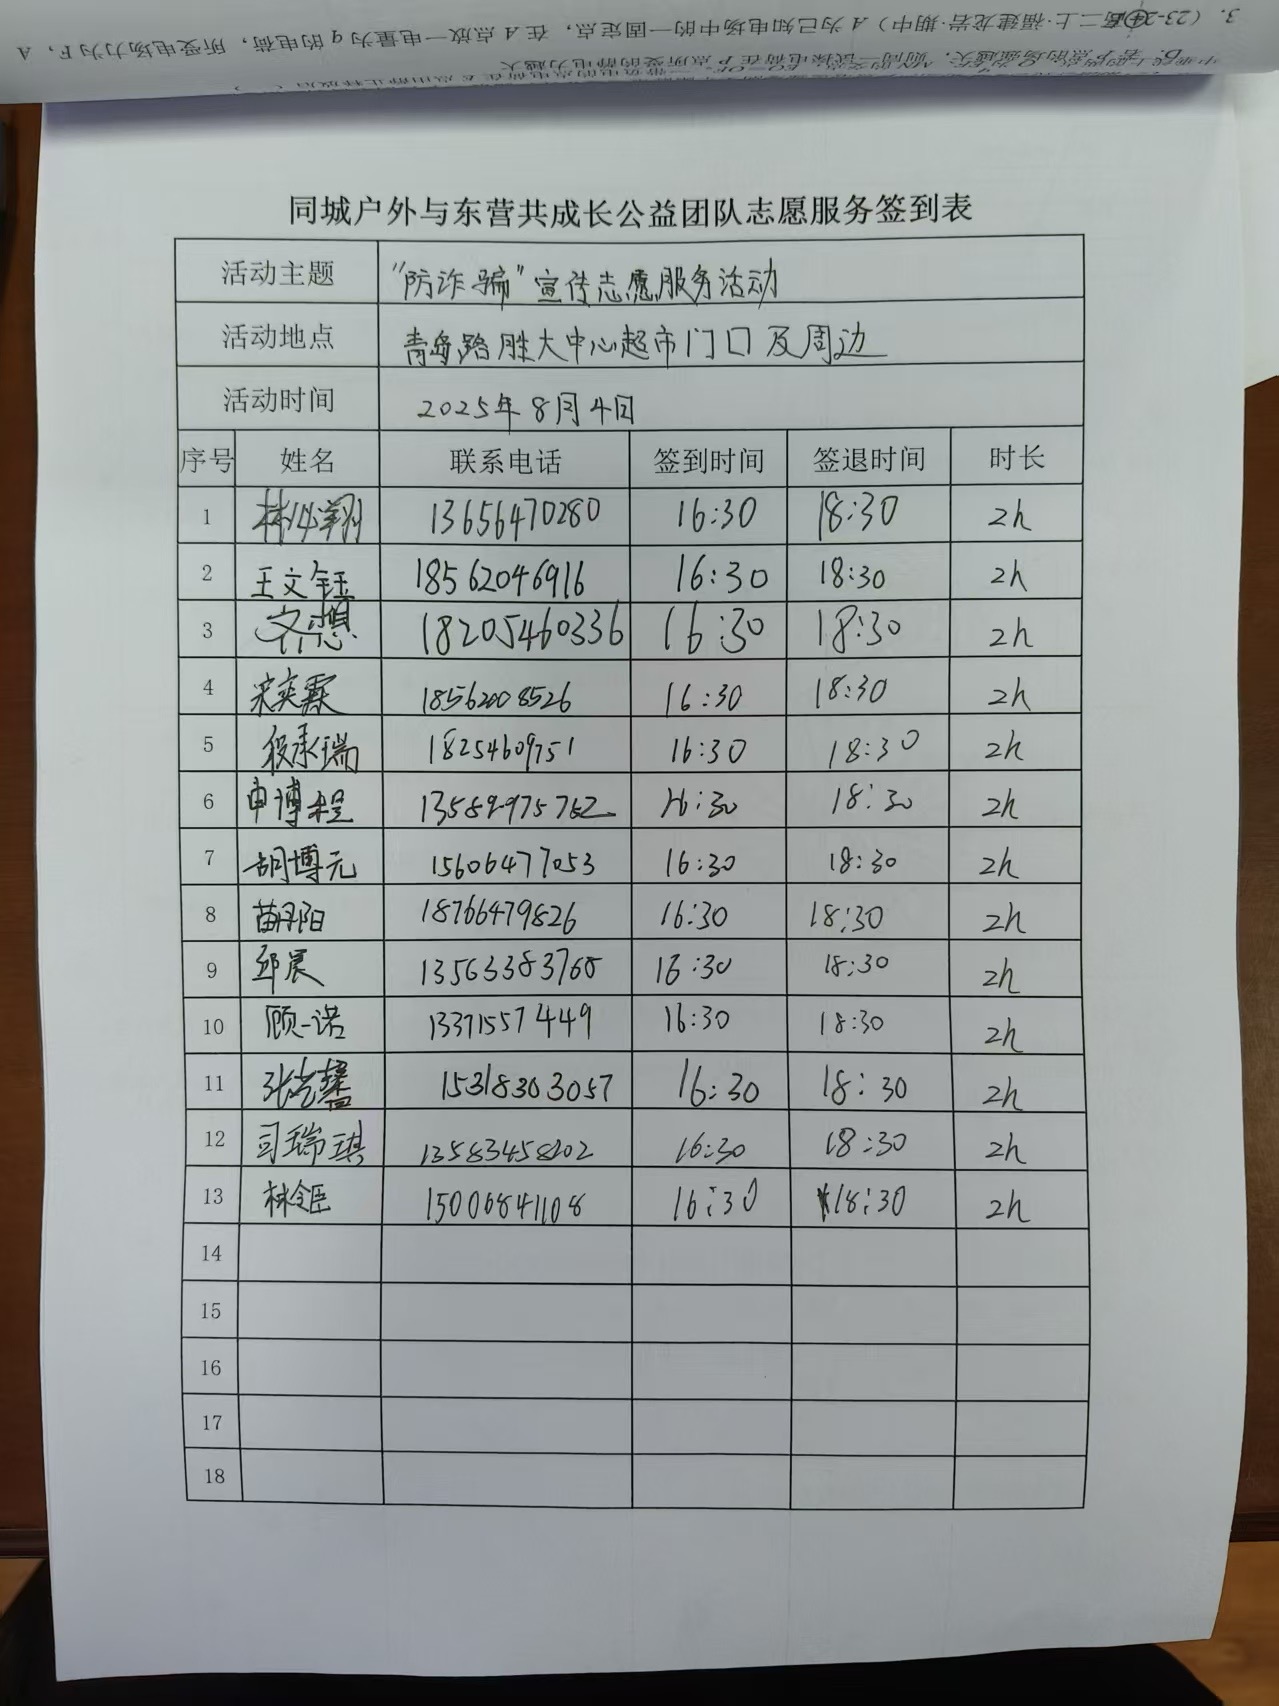 3. (23-24高二上·福建龙岩·期中) A 为已知电场中的一固定点，在 A 点放一电量为 q 的电荷，所受电场力为 F，A
同城户外与东营共成长公益团队志愿服务签到表
活动主题 “防诈骗”宣传志愿服务活动
活动地点 青岛路胜大中心超市门口及周边
活动时间 2025年8月4日
序号 姓名 联系电话 签到时间 签退时间 时长
1 13656470280 16:30 18:30 2h
2 王文钰 18562046916 16:30 18:30 2h
3 齐想 18205460336 16:30 18:30 2h
4 宋奕霖 18562008526 16:30 18:30 2h
5 段承瑞 18254609751 16:30 18:30 2h
6 申博程 13589975762 16:30 18:30 2h
7 胡博元 15606477053 16:30 18:30 2h
8 苗丹阳 18766479826 16:30 18:30 2h
9 邱晨 13563383768 16:30 18:30 2h
10 顾一诺 13371557449 16:30 18:30 2h
11 15318303057 16:30 18:30 2h
12 司瑞琪 13583458202 16:30 18:30 2h
13 15006841108 16:30 18:30 2h
14
15
16
17
18